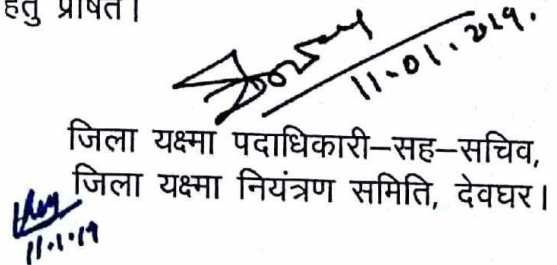 हेतु प्रेषित।
11.01.2019.
जिला यक्ष्मा पदाधिकारी–सह–सचिव,
जिला यक्ष्मा नियंत्रण समिति, देवघर।
11.1.19